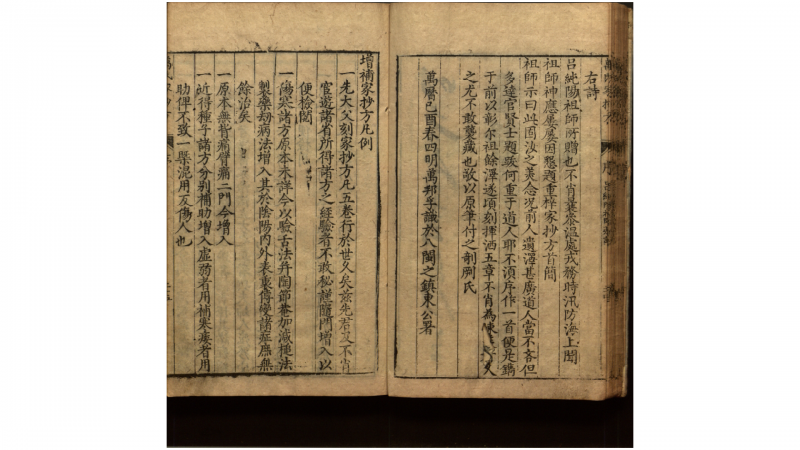 右詩
呂純陽祖師所贈也不肖葉叅溫處戎務時汛防海上聞
祖師神應屢屢因懇題重梓家抄方首簡
祖師示曰此固汝之美念况前人遺澤甚廣道人當不吝但
多達官賢士題跋何重于道人耶不須序作一首便是鐫
于前以彰尔祖餘澤遂頃刻揮洒五章不肖為陳久
之尤不敢襲藏也故以原筆付之剞劂氏
萬曆己酉春四明萬邦孚識於八閩之鎮東公署
增補家抄方凡例
一先大父刻家抄方凡五卷行於世久矣茲先君及不肖
宦遊諸省所得諸方之經驗者不敢秘謹隨門增入以
便檢閱
一傷寒諸方原本未詳今以驗舌法并陶節菴加減槌法
製藥劫病法增入其於陰陽內外表裏傳變諸症應無
餘治矣
一原本無背痛臂痛二門今增入
一近得種子諸方分别補助增入虛弱者用補寒痿者用
助俾不致一槩混用反傷人也